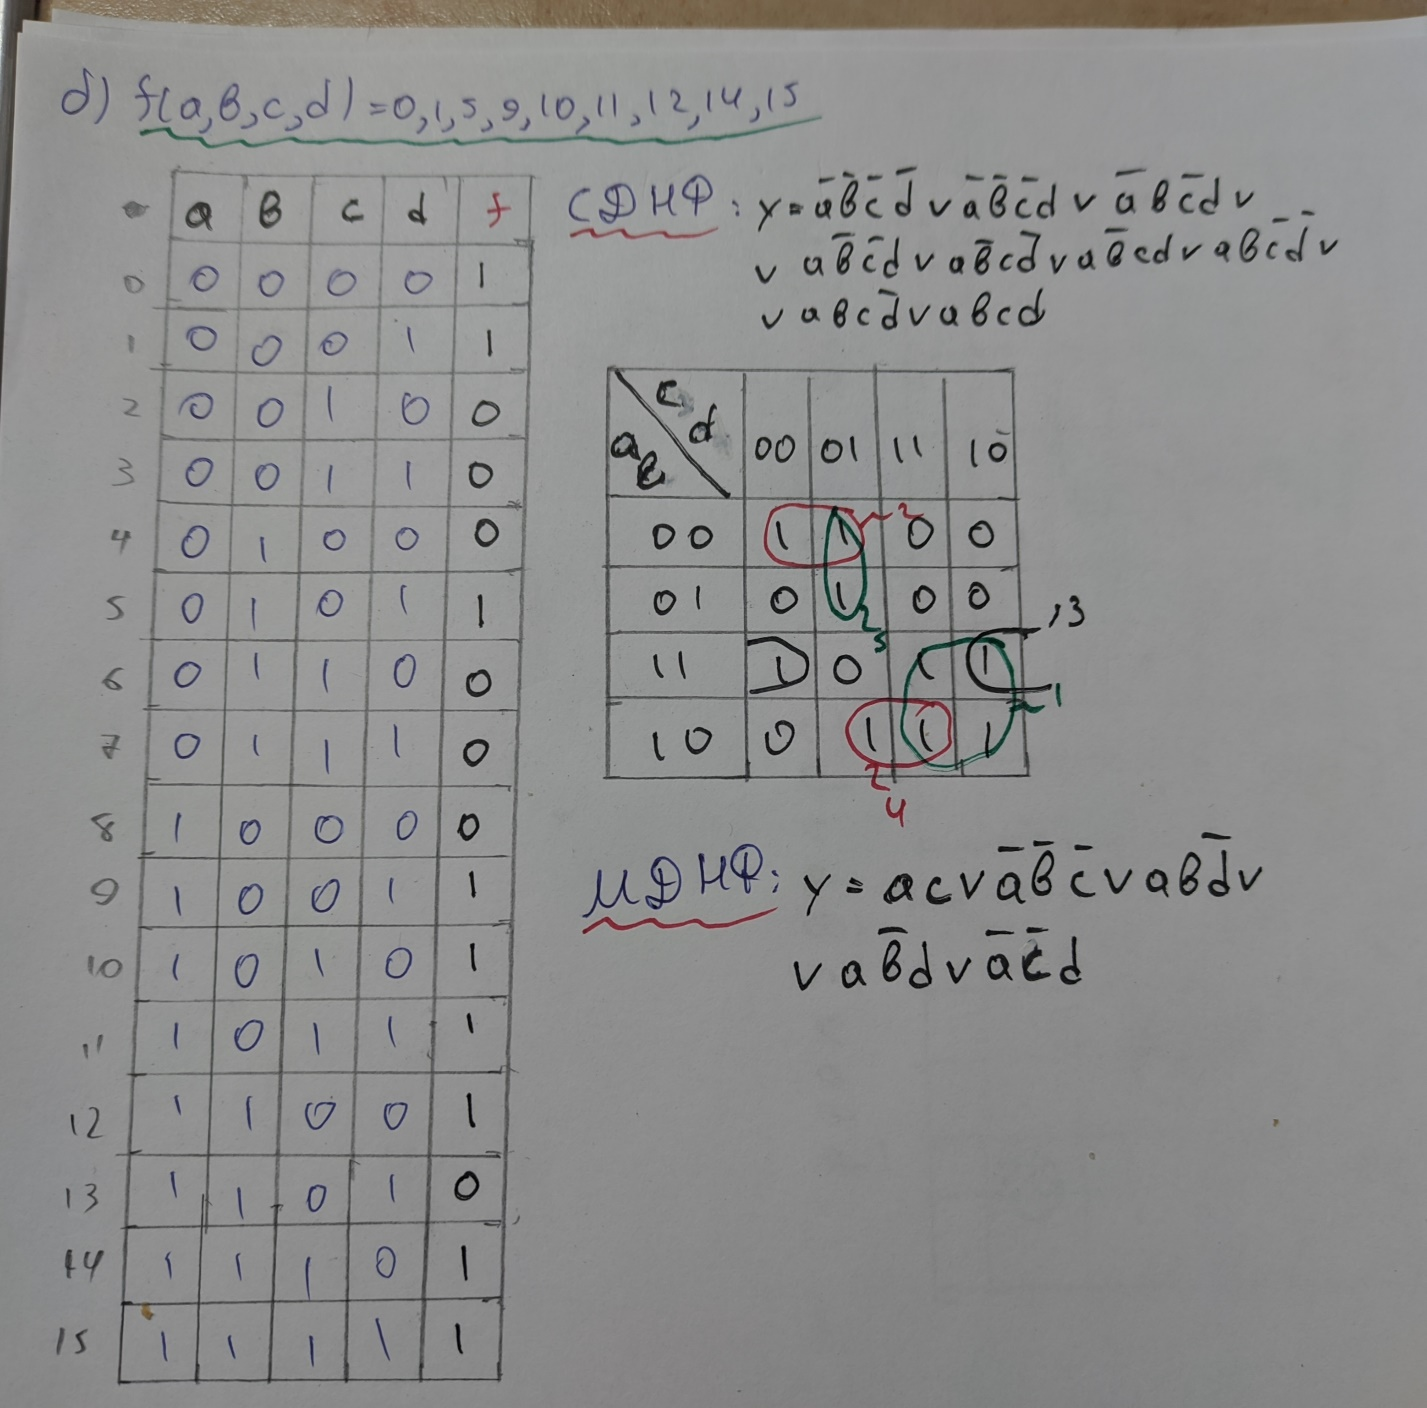 б) f(a,в,c,d)=0,1,5,9,10,11,12,14,15
a в c d f
0 0 0 0 0 1
1 0 0 0 1 1
2 0 0 1 0 0
3 0 0 1 1 0
4 0 1 0 0 0
5 0 1 0 1 1
6 0 1 1 0 0
7 0 1 1 1 0
8 1 0 0 0 0
9 1 0 0 1 1
10 1 0 1 0 1
11 1 0 1 1 1
12 1 1 0 0 1
13 1 1 0 1 0
14 1 1 1 0 1
15 1 1 1 1 1
СДНФ: y=a̅в̅c̅d̅ v a̅в̅c̅d v a̅вc̅d v
v aв̅c̅d v aв̅cd̅ v aв̅cd v aвc̅d̅ v
v aвcd̅ v aвcd
c d
aв 00 01 11 10
00 1 1 0 0 2
01 0 1 0 0 5
11 1 0 1 1 3
10 0 1 1 1 1
4
МДНФ: y = ac v a̅в̅c̅ v aвd̅ v
v aв̅d v a̅c̅d